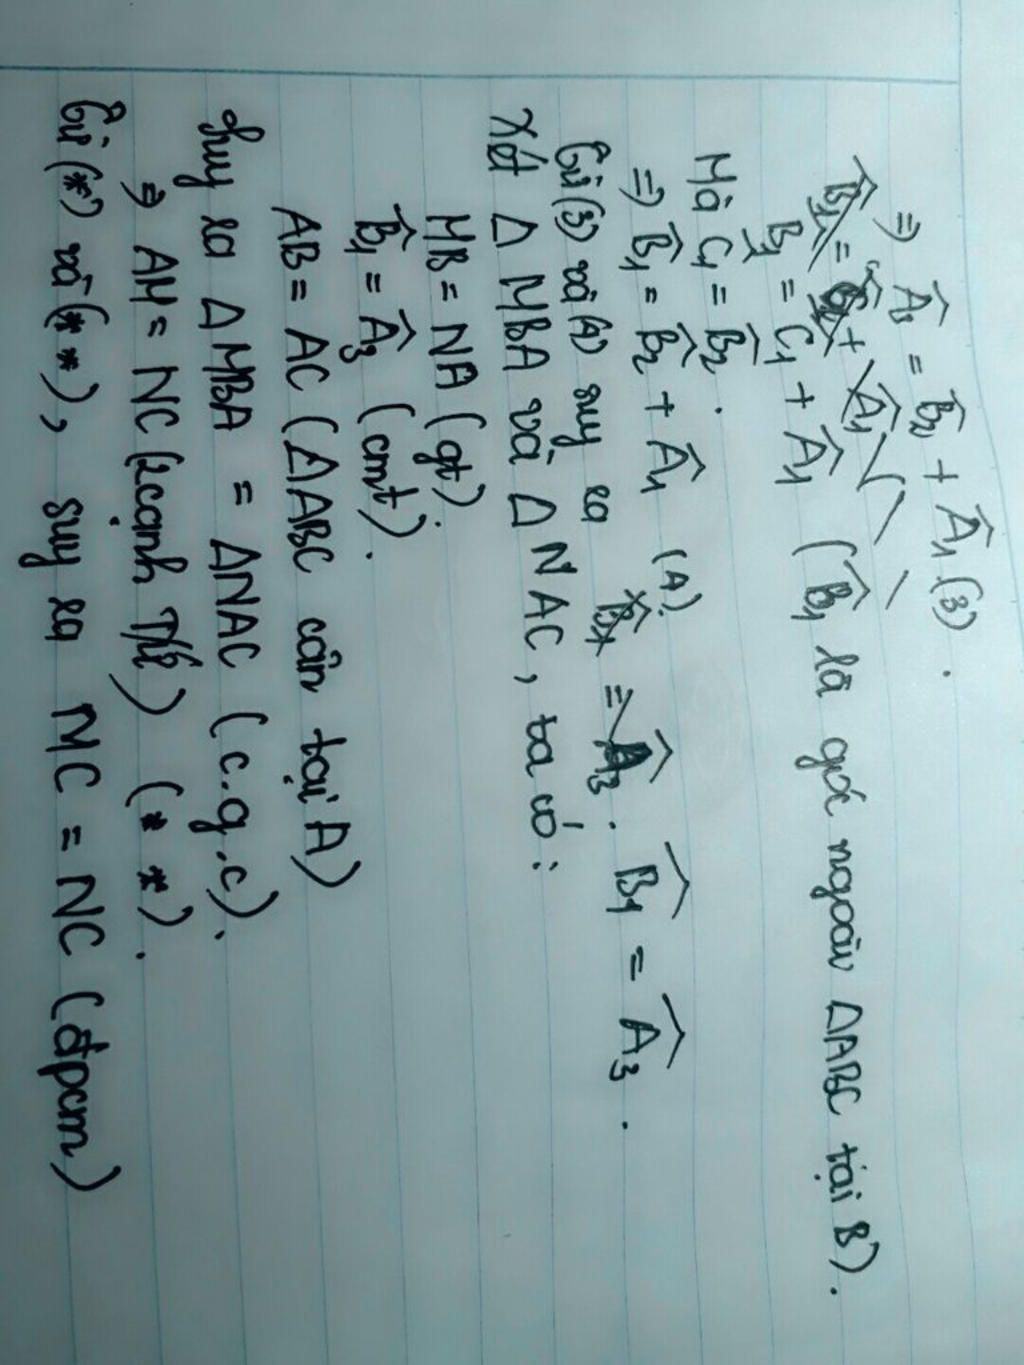 ⇒ Â₃ = B̂₂ + Â₁ (3).
B̂₁ = Ĉ₁ + Â₁ (B̂₁ là góc ngoài ΔABC tại B).
Mà Ĉ₁ = B̂₂.
⇒ B̂₁ = B̂₂ + Â₁ (4).
Từ (3) và (4) suy ra B̂₁ = Â₃.
Xét Δ MBA và Δ NAC, ta có:
MB = NA (gt).
B̂₁ = Â₃ (cmt).
AB = AC (ΔABC cân tại A)
Suy ra Δ MBA = ΔNAC (c.g.c).
⇒ AM = NC (2 cạnh T/ứ) (**).
Từ (*) và (**), suy ra MC = NC (đpcm)